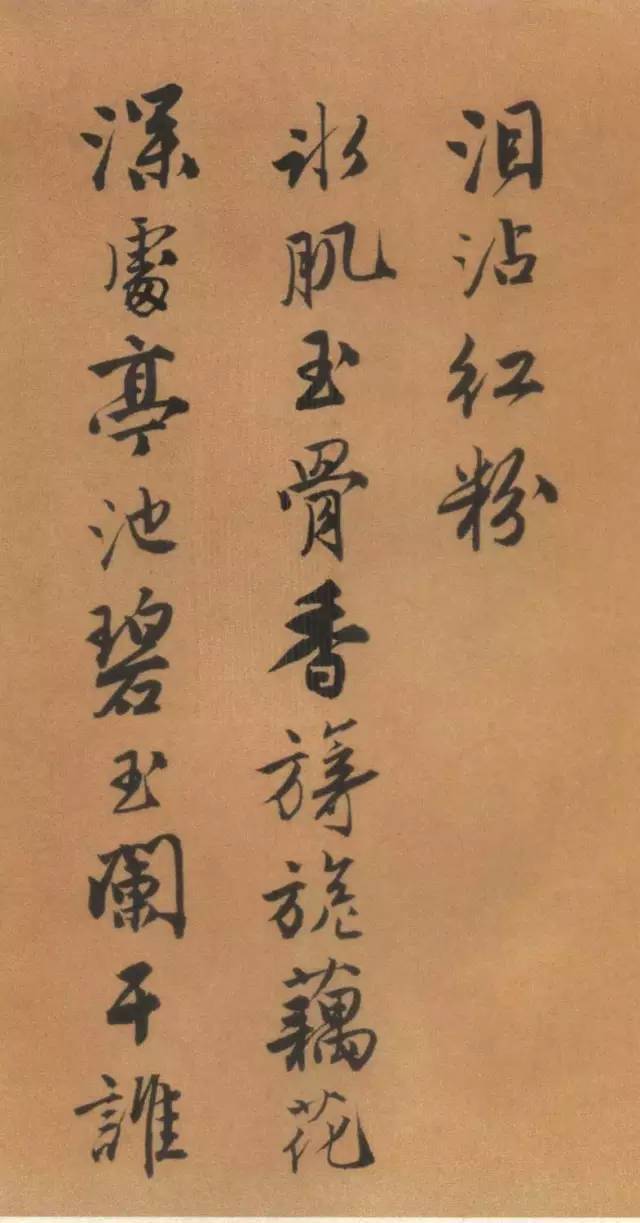 泪沾红粉
冰肌玉骨香旖旎藕花
深處亭池碧玉闌干誰